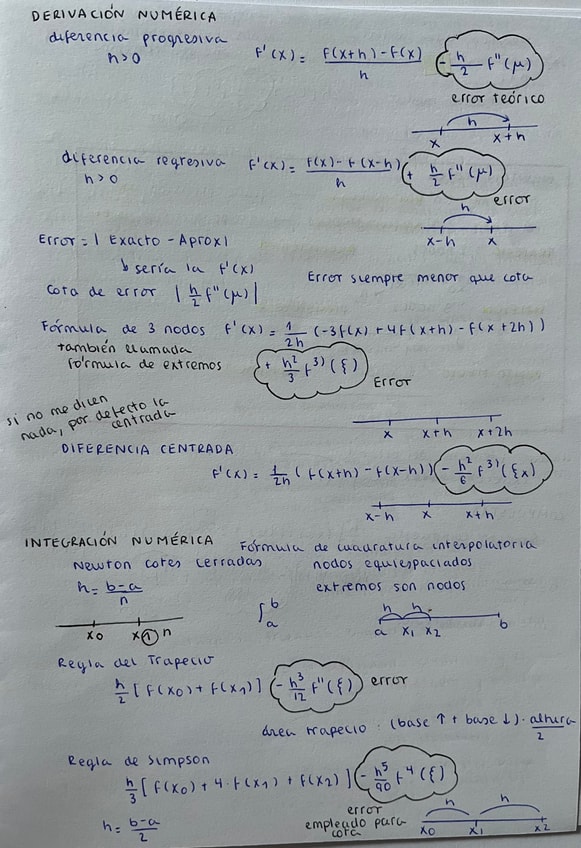 DERIVACIÓN NUMÉRICA
diferencia progresiva f'(x) = \frac{f(x+h) - f(x)}{h} - \frac{h}{2} f''(μ)
h>0
error teórico
h
x x+h
diferencia regresiva f'(x) = \frac{f(x) - f(x-h)}{h} + \frac{h}{2} f''(μ)
h>0
error
h
x-h x
Error = | Exacto - Aprox |
↳ sería la f'(x) Error siempre menor que cota
Cota de error | \frac{h}{2} f''(μ) |
Fórmula de 3 nodos f'(x) = \frac{1}{2h} (-3f(x) + 4f(x+h) - f(x+2h))
también llamada
fórmula de extremos + \frac{h²}{3} f³⁾(ξ) Error
si no me dicen
nada, por defecto la
centrada
x x+h x+2h
DIFERENCIA CENTRADA
f'(x) = \frac{1}{2h} (f(x+h) - f(x-h)) - \frac{h²}{6} f³⁾(ξx)
x-h x x+h
INTEGRACIÓN NUMÉRICA Fórmula de cuadratura interpolatoria
Newton cotes cerradas nodos equiespaciados
h = \frac{b-a}{n} extremos son nodos
∫_a^b
h h
x₀ x① n
a x₁ x₂ b
Regla del Trapecio
\frac{h}{2} [f(x₀) + f(x₁)] - \frac{h³}{12} f''(ξ) error
área trapecio : (base ↑ + base ↓) · \frac{altura}{2}
Regla de Simpson
\frac{h}{3} [f(x₀) + 4·f(x₁) + f(x₂)] - \frac{h⁵}{90} f⁴(ξ)
h = \frac{b-a}{2}
error
empleado para
cota
h h
x₀ x₁ x₂